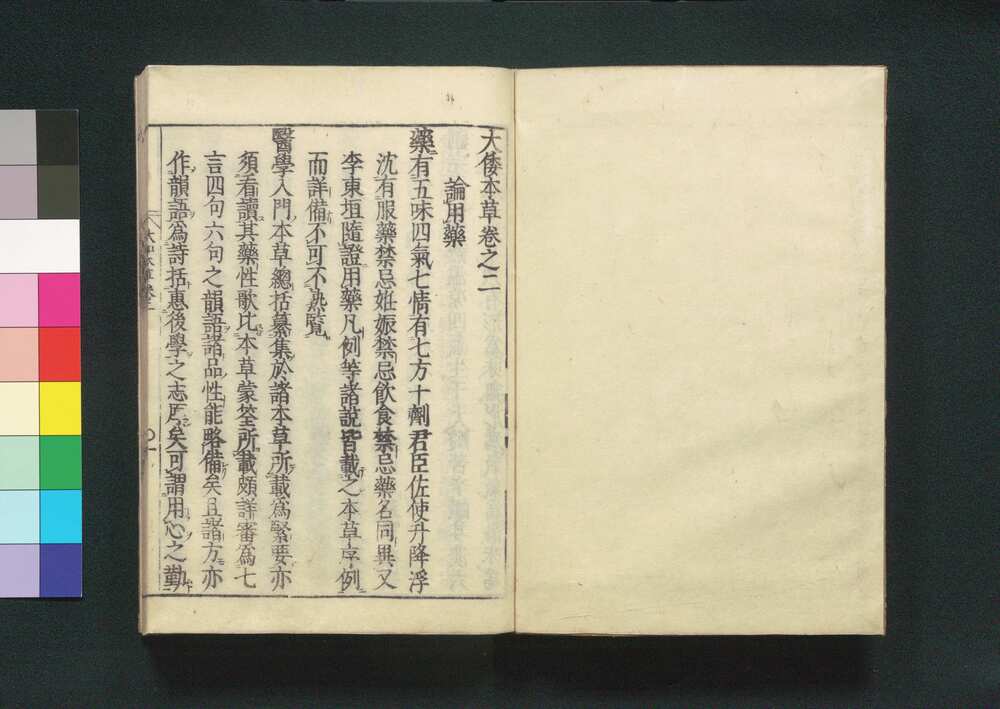 大倭本草卷之二
論用藥
藥有五味四氣七情有七方十劑君臣佐使升降浮
沈有服藥禁忌姙娠禁忌飲食禁忌藥名同異又
李東垣隨證用藥凡例等諸說皆載之本草序例
而詳備不可不熟覽
醫學入門本草總括纂集於諸本草所載爲緊要亦
須看讀其藥性歌比本草蒙筌所載頗詳審爲七
言四句六句之韻語諸品性能略備矣且諸方亦
作韻語爲詩括惠後學之志厚矣可謂用心之勤